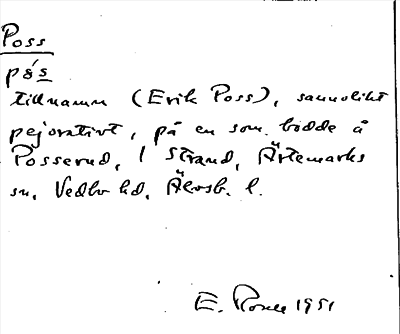 Poss
pås
tillnamn (Erik Poss), sannolikt
pejorativt, på en som bodde å
Posserud, i Strand, Ärtemarks
sn, Vedbo hd, Älvsb. l.
E. 1951